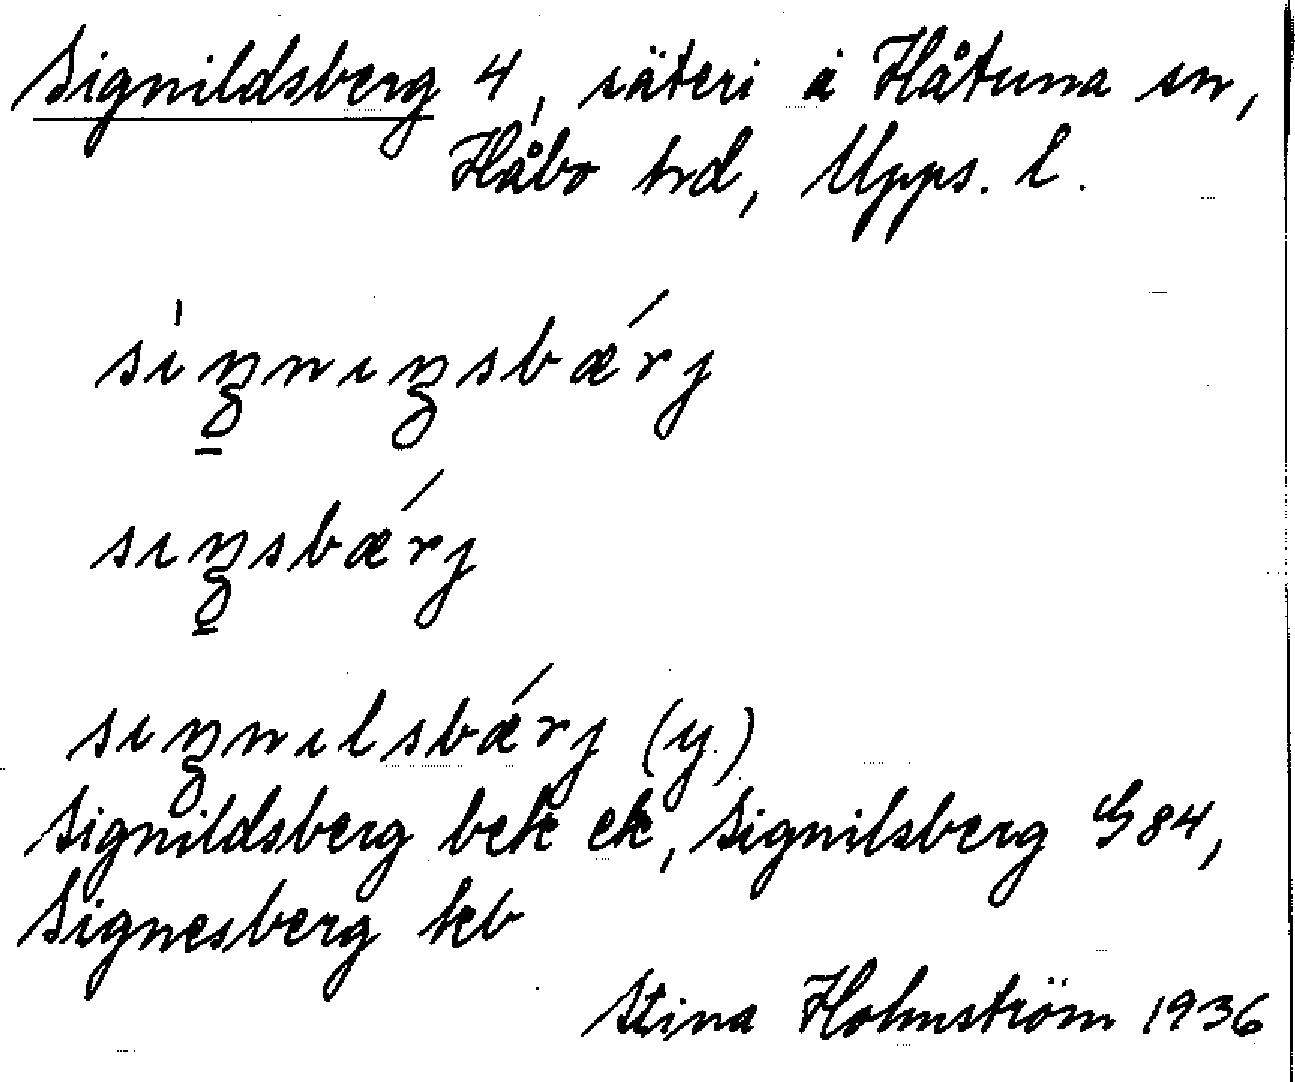 Signildsberg 4, säteri i Håtuna sn,
Håbo hd, Upps. l.
sıŋnıŋsbærj
sıŋsbærj
sıŋnılsbærj (y.)
Signildsberg bek ek, Signilsberg G84,
Signesberg kb
Stina Holmström 1936